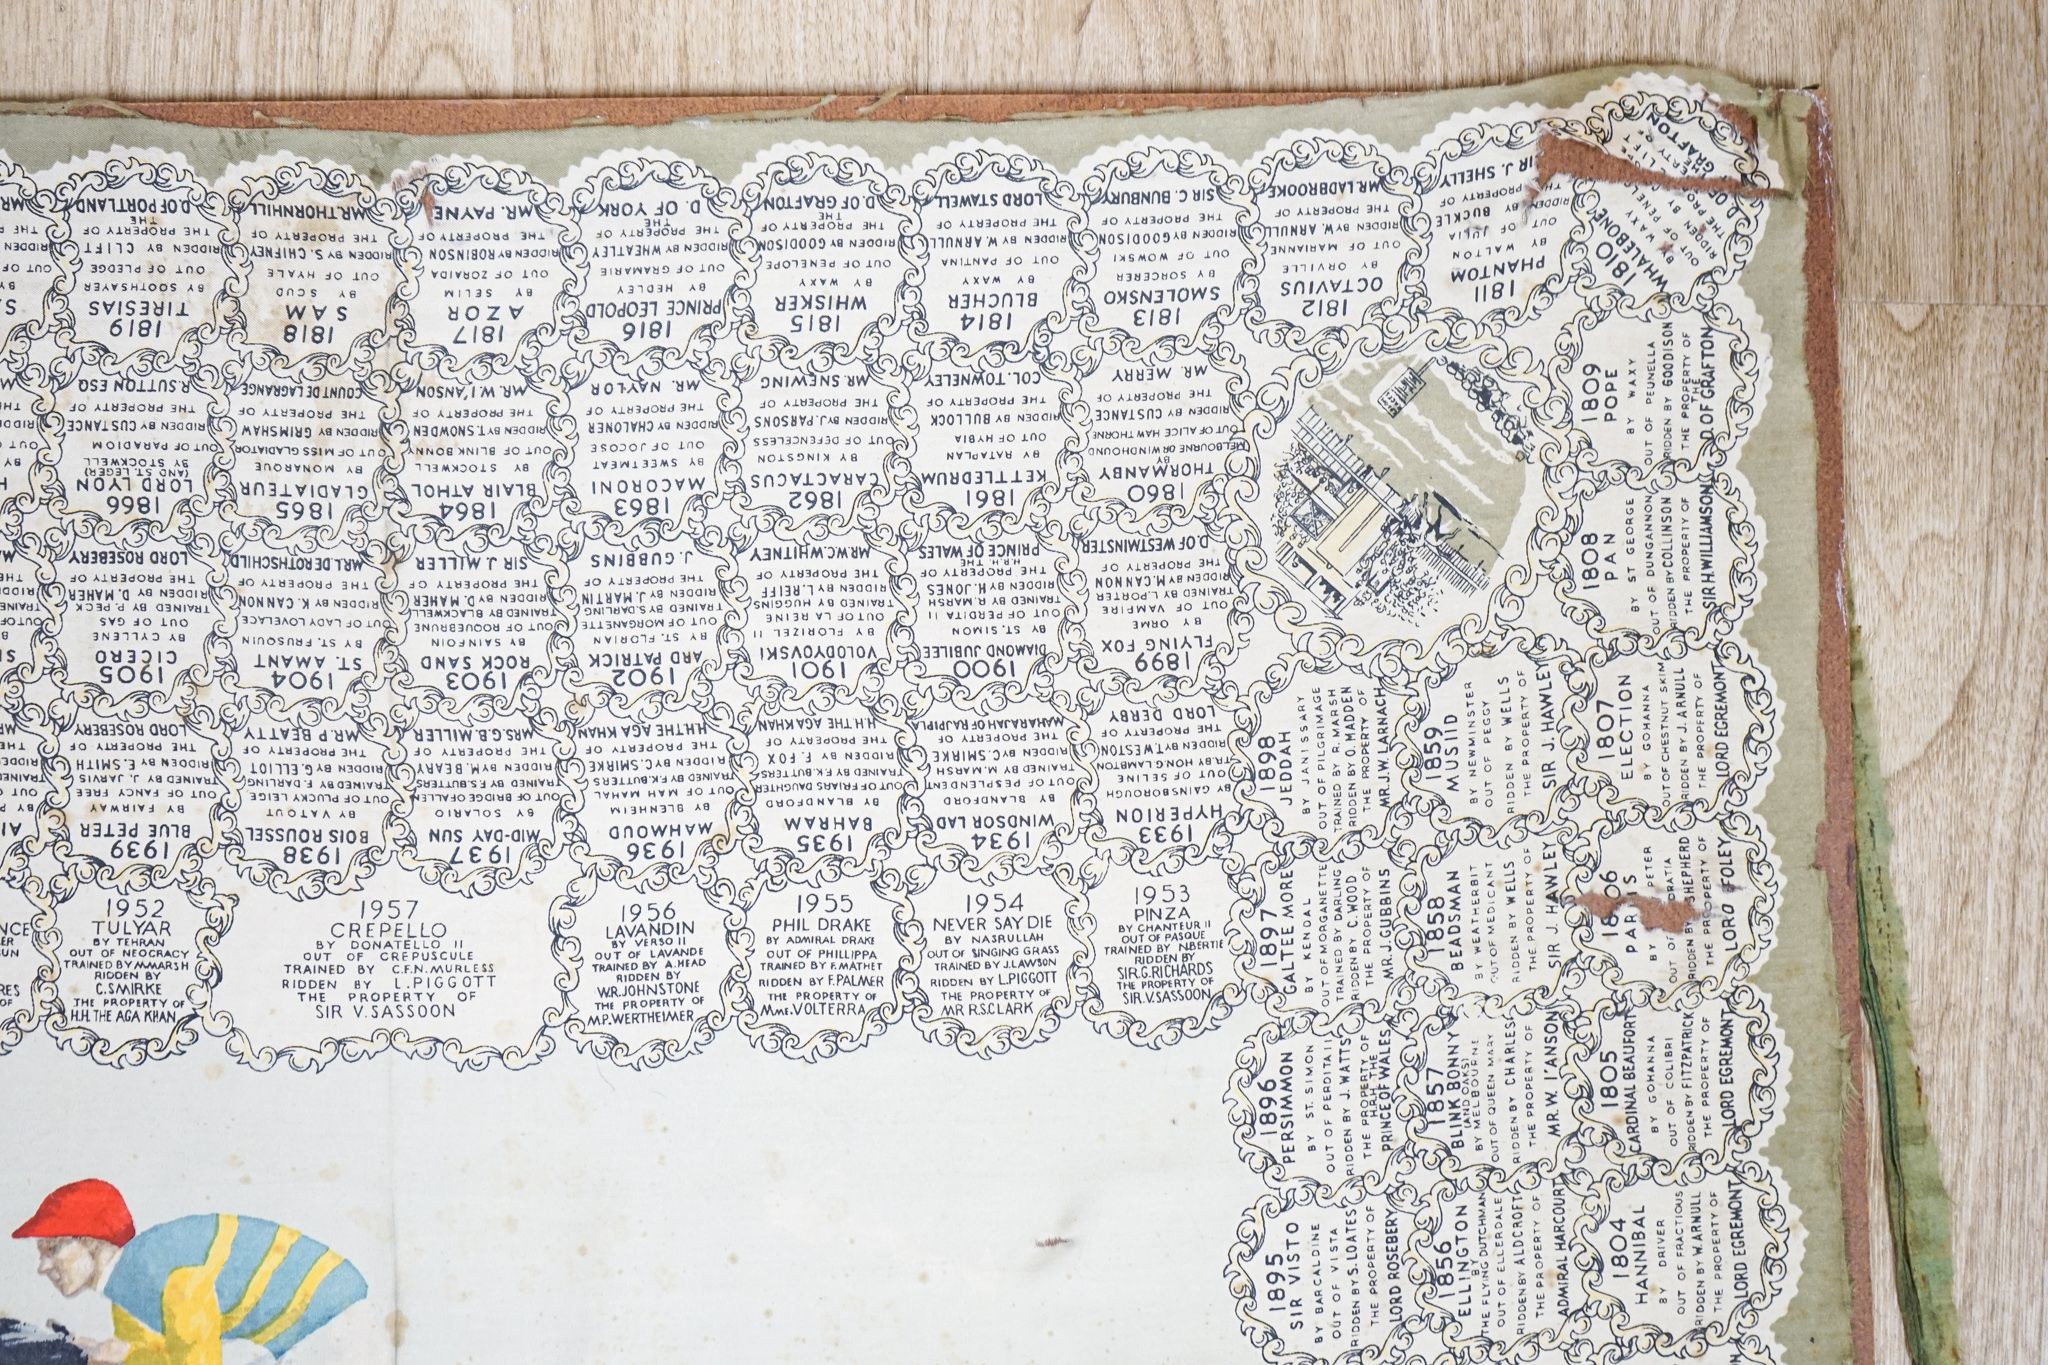 1952
TULYAR
BY TEHRAN
OUT OF NEOCRACY
TRAINED BY M.MARSH
RIDDEN BY
C.SMIRKE
THE PROPERTY OF
H.H. THE AGA KHAN
1957
CREPELLO
BY DONATELLO II
OUT OF CREPUSCULE
TRAINED BY C.F.N. MURLESS
RIDDEN BY L.PIGGOTT
THE PROPERTY OF
SIR V.SASSOON
1956
LAVANDIN
BY VERSO II
OUT OF LAVANDE
TRAINED BY A.HEAD
RIDDEN BY
W.R.JOHNSTONE
THE PROPERTY OF
M.P.WERTHEIMER
1955
PHIL DRAKE
BY ADMIRAL DRAKE
OUT OF PHILLIPPA
TRAINED BY F.MATHET
RIDDEN BY F.PALMER
THE PROPERTY OF
Mme.VOLTERRA
1954
NEVER SAY DIE
BY NASRULLAH
OUT OF SINGING GRASS
TRAINED BY J.LAWSON
RIDDEN BY L.PIGGOTT
THE PROPERTY OF
MR R.S.CLARK
1953
PINZA
BY CHANTEUR II
OUT OF PASQUE
TRAINED BY N.BERTIE
RIDDEN BY
SIR.G.RICHARDS
THE PROPERTY OF
SIR.V.SASSOON
1939
BLUE PETER
BY FAIRWAY
OUT OF FANCY FREE
TRAINED BY J. JARVIS
RIDDEN BY E.SMITH
THE PROPERTY OF
LORD ROSEBERY
1938
BOIS ROUSSEL
BY VATOUT
OUT OF PLUCKY LEIGE
TRAINED BY F. DARLING
RIDDEN BY G.ELLIOT
THE PROPERTY OF
MR. P.BEATTY
1937
MID-DAY SUN
BY SOLARIO
OUT OF BRIDGE OF ALLEN
TRAINED BY F.S.BUTTERS
RIDDEN BY M.BEARY
THE PROPERTY OF
MRS.G.B.MILLER
1936
MAHMOUD
BY BLENHEIM
OUT OF MAH MAHAL
TRAINED BY F.K.BUTTERS
RIDDEN BY C.SMIRKE
THE PROPERTY OF
H.H.THE AGA KHAN
1935
BAHRAM
BY BLANDFORD
OUT OF FRIARS DAUGHTER
TRAINED BY F.K.BUTTERS
RIDDEN BY F. FOX
THE PROPERTY OF
H.H.THE AGA KHAN
1934
WINDSOR LAD
BY BLANDFORD
OUT OF RESPLENDENT
TRAINED BY M. MARSH
RIDDEN BY C.SMIRKE
THE PROPERTY OF
MAHARAJAH OF RAJPIPLA
1933
HYPERION
BY GAINSBOROUGH
OUT OF SELINE
TR.BY HON.G.LAMBTON
RIDDEN BY T.WESTON
THE PROPERTY OF
LORD DERBY
1905
CICERO
BY CYLLENE
OUT OF GAS
TRAINED BY P. PECK
RIDDEN BY D. MAHER
THE PROPERTY OF
LORD ROSEBERY
1904
ST. AMANT
BY ST. FRUSQUIN
OUT OF LADY LOVELACE
RIDDEN BY K. CANNON
THE PROPERTY OF
MR L.DE ROTHSCHILD
1903
ROCK SAND
BY SAINFOIN
OUT OF ROQUEBRUNE
TRAINED BY BLACKWELL
RIDDEN BY D. MAHER
THE PROPERTY OF
SIR J. MILLER
1902
ARD PATRICK
BY ST. FLORIAN
OUT OF MORGANETTE
TRAINED BY S.DARLING
RIDDEN BY J. MARTIN
THE PROPERTY OF
J. GUBBINS
1901
VOLODYOVSKI
BY FLORIZEL II
OUT OF LA REINE
TRAINED BY HUGGINS
RIDDEN BY L. REIFF
THE PROPERTY OF
MR.W.C.WHITNEY
1900
DIAMOND JUBILEE
BY ST. SIMON
OUT OF PERDITA II
TRAINED BY R. MARSH
RIDDEN BY H. JONES
THE PROPERTY OF
H.R.H. THE
PRINCE OF WALES
1899
FLYING FOX
BY ORME
OUT OF VAMPIRE
TRAINED BY J.PORTER
RIDDEN BY M.CANNON
THE PROPERTY OF
D.OF WESTMINSTER
1866
LORD LYON
(AND ST.LEGER)
BY STOCKWELL
OUT OF PARADIGM
RIDDEN BY CUSTANCE
THE PROPERTY OF
R.SUTTON ESQ
1865
GLADIATEUR
BY MONARQUE
OUT OF MISS GLADIATOR
RIDDEN BY GRIMSHAW
THE PROPERTY OF
COUNT DE LAGRANCE
1864
BLAIR ATHOL
BY STOCKWELL
OUT OF BLINK BONNY
RIDDEN BY T.SNOWDEN
THE PROPERTY OF
MR.W.I'ANSON
1863
MACORONI
BY SWEETMEAT
OUT OF JOCOSE
RIDDEN BY CHALONER
THE PROPERTY OF
MR. NAYLOR
1862
CARACTACUS
BY KINGSTON
OUT OF DEFENCELESS
RIDDEN BY J.PARSONS
THE PROPERTY OF
MR. SNEWING
1861
KETTLEDRUM
BY RATAPLAN
OUT OF HYBLA
RIDDEN BY BULLOCK
THE PROPERTY OF
COL. TOWNELEY
1860
THORMANBY
BY
MELBOURNE OR WINDHOUND
OUT OF ALICE HAWTHORNE
RIDDEN BY CUSTANCE
THE PROPERTY OF
MR. MERRY
1819
TIRESIAS
BY SOOTHSAYER
OUT OF PLEDGE
RIDDEN BY CLIFT
THE PROPERTY OF
THE
D.OF PORTLAND
1818
SAM
BY SCUD
OUT OF HYALE
RIDDEN BY S. CHIFNEY
THE PROPERTY OF
MR.THORNHILL
1817
AZOR
BY SELIM
OUT OF ZORAIDA
RIDDEN BY ROBINSON
THE PROPERTY OF
MR. PAYNE
1816
PRINCE LEOPOLD
BY HEDLEY
OUT OF GRAMARIE
RIDDEN BY WHEATLEY
THE PROPERTY OF
THE
D. OF YORK
1815
WHISKER
BY WAXY
OUT OF PENELOPE
RIDDEN BY GOODISON
THE PROPERTY OF
THE
D.OF GRAFTON
1814
BLUCHER
BY WAXY
OUT OF PANTINA
RIDDEN BY W.ARNULL
THE PROPERTY OF
LORD STAWELL
1813
SMOLENSKO
BY SORCERER
OUT OF WOWSKI
RIDDEN BY GOODISON
THE PROPERTY OF
SIR C. BUNBURY
1812
OCTAVIUS
BY ORVILLE
OUT OF MARIANNE
RIDDEN BY W.ARNULL
THE PROPERTY OF
MR.LADBROOKE
1811
PHANTOM
BY WALTON
OUT OF JULIA
RIDDEN BY BUCKLE
THE PROPERTY OF
SIR J. SHELLY
1810
WHALEBONE
BY WAXY
OUT OF
RIDDEN BY
GRAFTON
1809
POPE
BY WAXY
OUT OF PEUNELLA
RIDDEN BY GOODISON
THE PROPERTY OF
THE
D.OF GRAFTON
1808
PAN
BY ST GEORGE
OUT OF DUNGANNON
RIDDEN BY COLLINSON
THE PROPERTY OF
SIR.H.WILLIAMSON
1807
ELECTION
BY GOHANNA
OUT OF CHESTNUT SKIM
RIDDEN BY J.ARNULL
THE PROPERTY OF
LORD EGREMONT
1806
PARIS
BY PETER
OUT OF
RIDDEN BY SHEPHERD
THE PROPERTY OF
LORD FOLEY
1805
CARDINAL BEAUFORT
BY GOHANNA
OUT OF COLIBRI
RIDDEN BY FITZPATRICK
THE PROPERTY OF
LORD EGREMONT
1804
HANNIBAL
BY DRIVER
OUT OF FRACTIOUS
RIDDEN BY W.ARNULL
THE PROPERTY OF
LORD EGREMONT
1859
MUSJID
BY NEWMINSTER
OUT OF PEGGY
RIDDEN BY WELLS
THE PROPERTY OF
SIR J. HAWLEY
1858
BEADSMAN
BY WEATHERBIT
OUT OF MEDICANT
RIDDEN BY WELLS
THE PROPERTY OF
SIR J. HAWLEY
1857
BLINK BONNY
(AND OAKS)
BY MELBOURNE
OUT OF QUEEN MARY
RIDDEN BY CHARLES
THE PROPERTY OF
MR. W. I'ANSON
1856
ELLINGTON
BY
THE FLYING DUTCHMAN
OUT OF ELLERDALE
RIDDEN BY ALDCROFT
THE PROPERTY OF
ADMIRAL HARCOURT
1898
JEDDAH
BY JANISSARY
OUT OF PILGRIMAGE
TRAINED BY R. MARSH
RIDDEN BY O.MADDEN
THE PROPERTY OF
MR.J.W.LARNACH
1897
GALTEE MORE
BY KENDAL
OUT OF MORGANETTE
TRAINED BY DARLING
RIDDEN BY C.WOOD
THE PROPERTY OF
MR.J.GUBBINS
1896
PERSIMMON
BY ST. SIMON
OUT OF PERDITA II
RIDDEN BY J. WATTS
THE PROPERTY OF
H.R.H. THE
PRINCE OF WALES
1895
SIR VISTO
BY BARCALDINE
OUT OF VISTA
RIDDEN BY S.LOATES
THE PROPERTY OF
LORD ROSEBERY